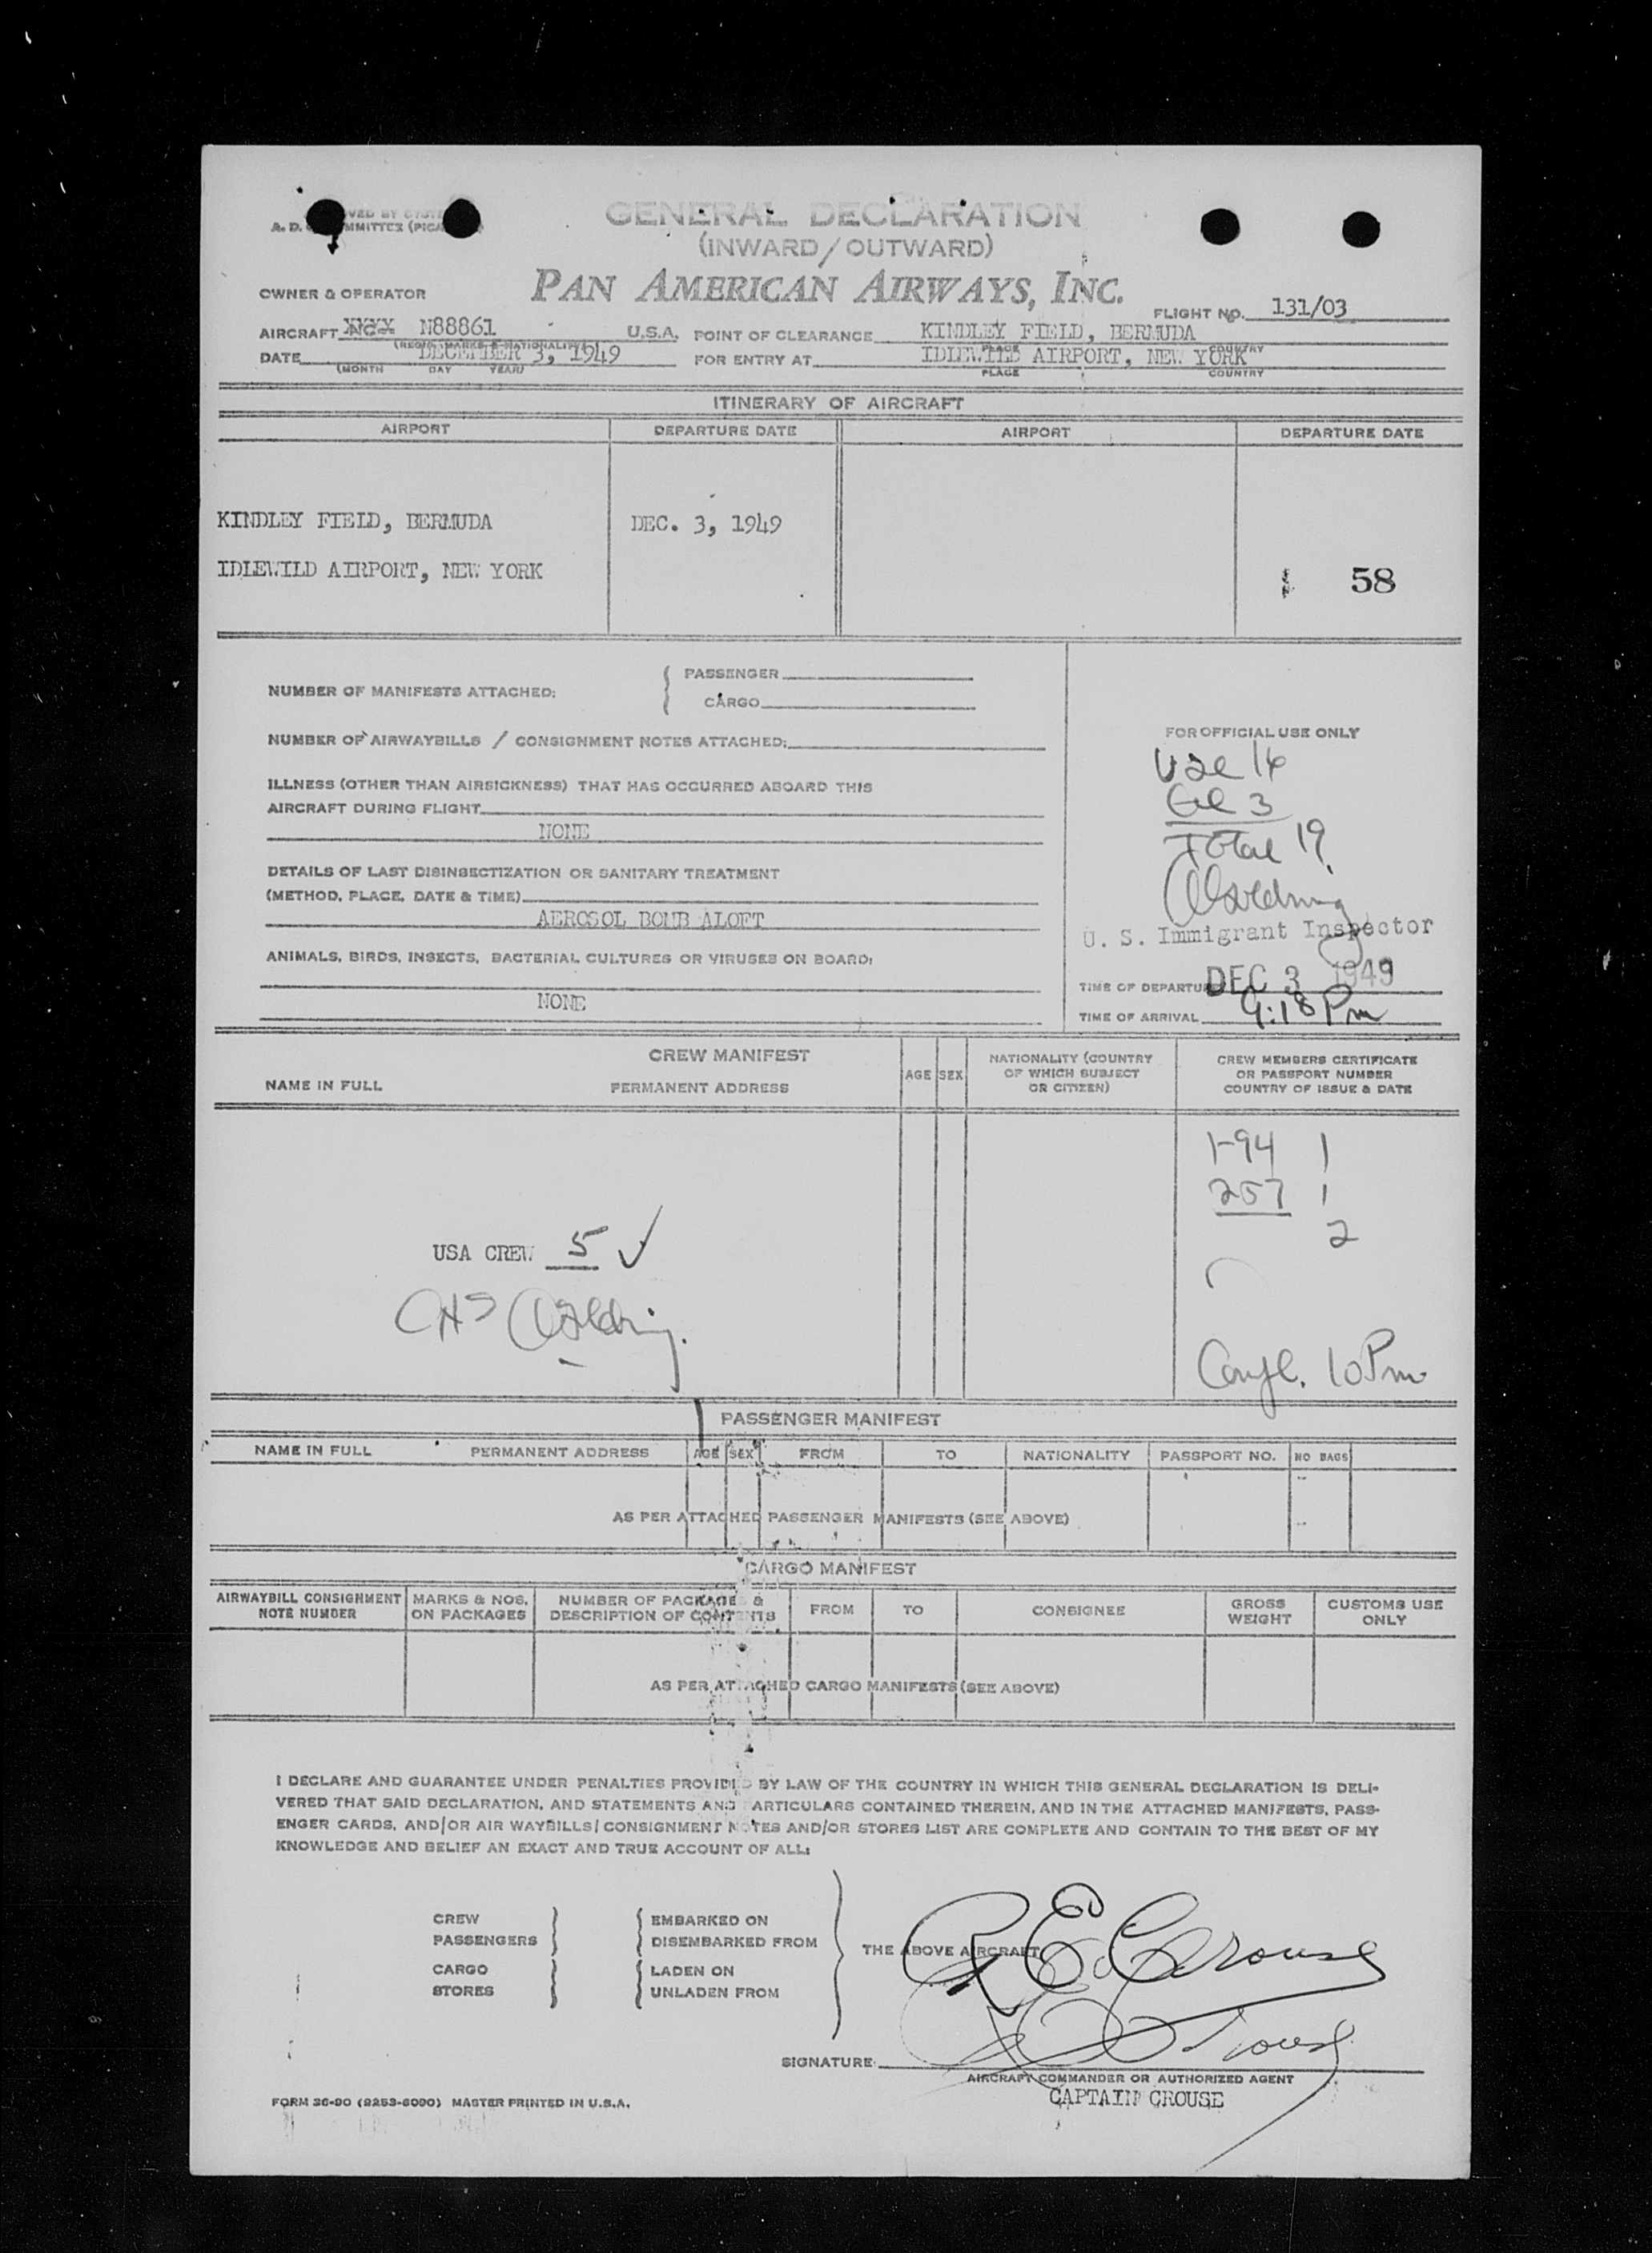 GENERAL DECLARATION
(INWARD / OUTWARD)
OWNER & OPERATOR PAN AMERICAN AIRWAYS, INC.
FLIGHT NO. 131/03
AIRCRAFT N88861 U.S.A. POINT OF CLEARANCE KINDLEY FIELD, BERMUDA
(REGIS. MARKS & NATIONALITY) PLACE COUNTRY
DATE DECEMBER 3, 1949 FOR ENTRY AT IDLEWILD AIRPORT, NEW YORK
(MONTH DAY YEAR) PLACE COUNTRY
ITINERARY OF AIRCRAFT
AIRPORT DEPARTURE DATE AIRPORT DEPARTURE DATE
KINDLEY FIELD, BERMUDA DEC. 3, 1949
IDLEWILD AIRPORT, NEW YORK
58
NUMBER OF MANIFESTS ATTACHED: PASSENGER
CARGO
NUMBER OF AIRWAYBILLS / CONSIGNMENT NOTES ATTACHED:
ILLNESS (OTHER THAN AIRSICKNESS) THAT HAS OCCURRED ABOARD THIS
AIRCRAFT DURING FLIGHT
NONE
DETAILS OF LAST DISINSECTIZATION OR SANITARY TREATMENT
(METHOD, PLACE, DATE & TIME)
AEROSOL BOMB ALOFT
ANIMALS, BIRDS, INSECTS, BACTERIAL CULTURES OR VIRUSES ON BOARD:
NONE
FOR OFFICIAL USE ONLY
16
3
Total 19
U. S. Immigrant Inspector
TIME OF DEPARTURE DEC 3 1949
TIME OF ARRIVAL 9:18 Pm
CREW MANIFEST
NAME IN FULL PERMANENT ADDRESS AGE SEX NATIONALITY (COUNTRY OF WHICH SUBJECT OR CITIZEN) CREW MEMBERS CERTIFICATE OR PASSPORT NUMBER COUNTRY OF ISSUE & DATE
1-94 1
257 1
2
USA CREW 5 ✓
10 Pm
PASSENGER MANIFEST
NAME IN FULL PERMANENT ADDRESS AGE SEX FROM TO NATIONALITY PASSPORT NO. NO BAGS
AS PER ATTACHED PASSENGER MANIFESTS (SEE ABOVE)
CARGO MANIFEST
AIRWAYBILL CONSIGNMENT NOTE NUMBER MARKS & NOS. ON PACKAGES NUMBER OF PACKAGES & DESCRIPTION OF CONTENTS FROM TO CONSIGNEE GROSS WEIGHT CUSTOMS USE ONLY
AS PER ATTACHED CARGO MANIFESTS (SEE ABOVE)
I DECLARE AND GUARANTEE UNDER PENALTIES PROVIDED BY LAW OF THE COUNTRY IN WHICH THIS GENERAL DECLARATION IS DELI-
VERED THAT SAID DECLARATION, AND STATEMENTS AND PARTICULARS CONTAINED THEREIN, AND IN THE ATTACHED MANIFESTS, PASS-
ENGER CARDS, AND/OR AIR WAYBILLS/CONSIGNMENT NOTES AND/OR STORES LIST ARE COMPLETE AND CONTAIN TO THE BEST OF MY
KNOWLEDGE AND BELIEF AN EXACT AND TRUE ACCOUNT OF ALL:
CREW EMBARKED ON
PASSENGERS DISEMBARKED FROM
THE ABOVE AIRCRAFT
CARGO LADEN ON
STORES UNLADEN FROM
R E Crouse
SIGNATURE:
AIRCRAFT COMMANDER OR AUTHORIZED AGENT
CAPTAIN CROUSE
FORM 36-90 (9253-6090) MASTER PRINTED IN U.S.A.